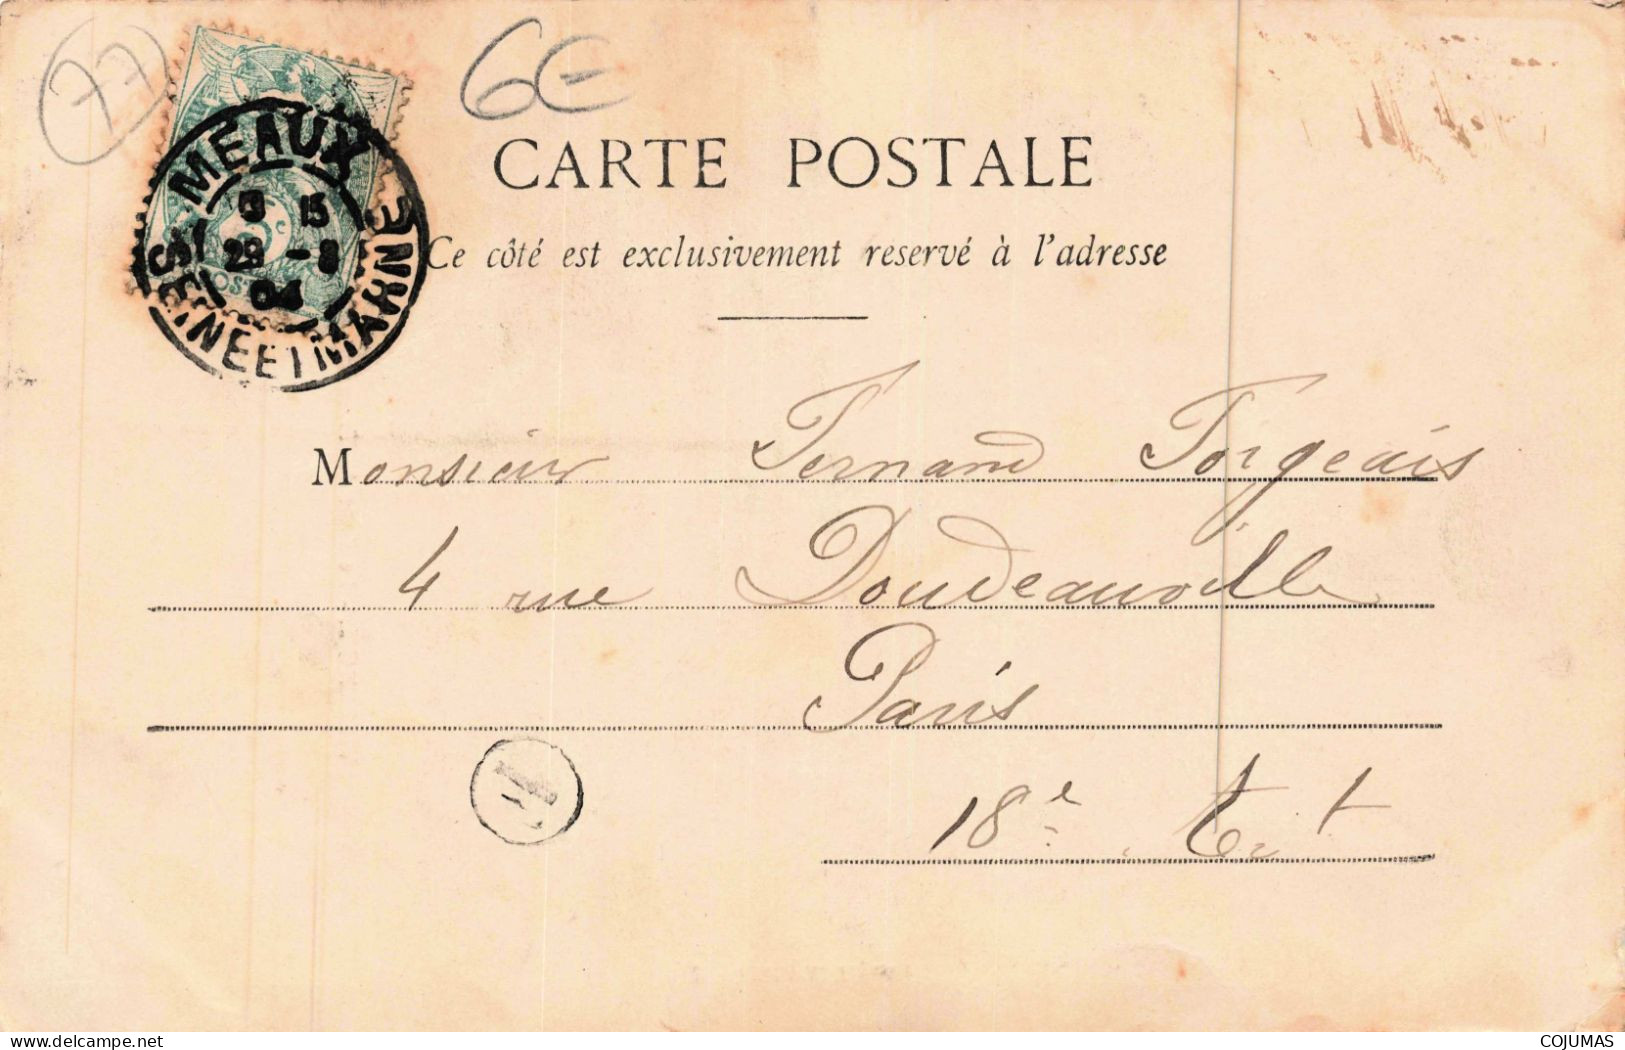 77
6€
MEAUX
3 15
29 - 8
04
SEINE ET MARNE
5c
CARTE POSTALE
Ce côté est exclusivement reservé à l'adresse
Monsieur Fernand Forgeais
4 rue Doudeauville
Paris
18e Art
delcampe.net
COJUMAS